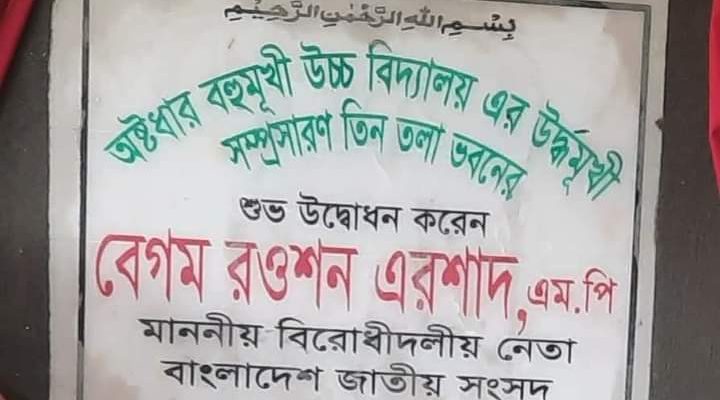 بِسْمِ اللهِ الرَّحْمٰنِ الرَّحِيْمِ
অষ্টধার বহুমূখী উচ্চ বিদ্যালয় এর উর্দ্ধমূখী
সম্প্রসারণ তিন তলা ভবনের
শুভ উদ্বোধন করেন
বেগম রওশন এরশাদ, এম.পি
মাননীয় বিরোধীদলীয় নেতা
বাংলাদেশ জাতীয় সংসদ